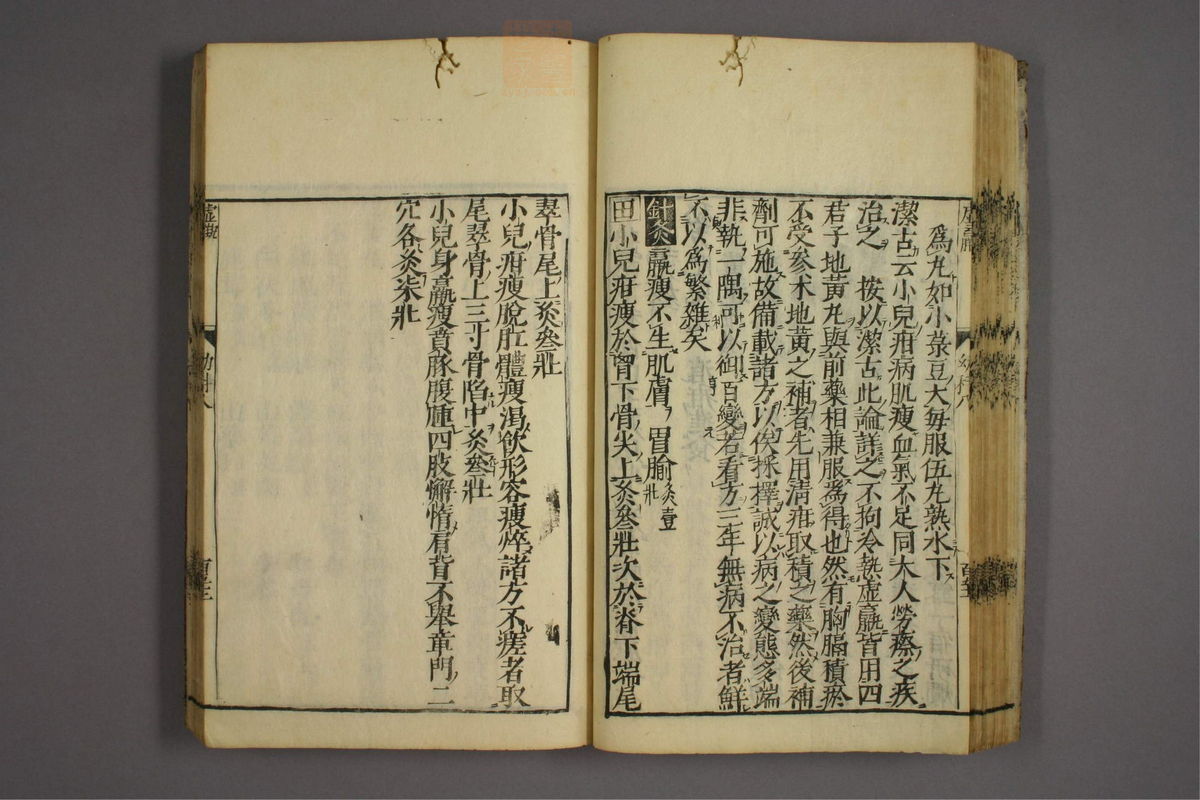 為丸如小菉豆大毎服伍丸熟水下
潔古云小兒疳病肌瘦血氣不足同大人勞瘵之疾
治之 按以潔古此論詳之不拘冷熱虛羸皆用四
君子地黃丸與前藥相兼服爲得也然有胸膈積瘀
不受參术地黃之補者先用清疳取積之藥然後補
劑可施故備載諸方以俟採擇誠以病之變態多端
非執一隅可以御百變若看方三年無病不治者鮮
不以爲繁雜矣
針灸 羸瘦不生肌膚 胃腧灸壹壯
田小兒疳瘦於胷下骨尖上灸叄壯次於脊下端尾
翠骨尾上灸叄壯
小兒疳瘦脫肛體瘦渴飲形容瘦瘁諸方不瘥者取
尾翠骨上三寸骨陷中灸叄壯
小兒身羸瘦賁豚腹腫四肢懈惰肩背不舉章門二
穴各灸柒壯
虛羸
幼科八